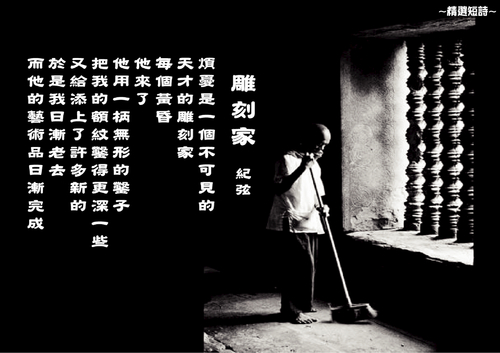 ~精選短詩~
雕刻家
紀弦
煩憂是一個不可見的
天才的雕刻家
每個黃昏
他來了
他用一柄無形的鑿子
把我的額紋鑿得更深一些
又給添上了許多新的
於是我日漸老去
而他的藝術品日漸完成